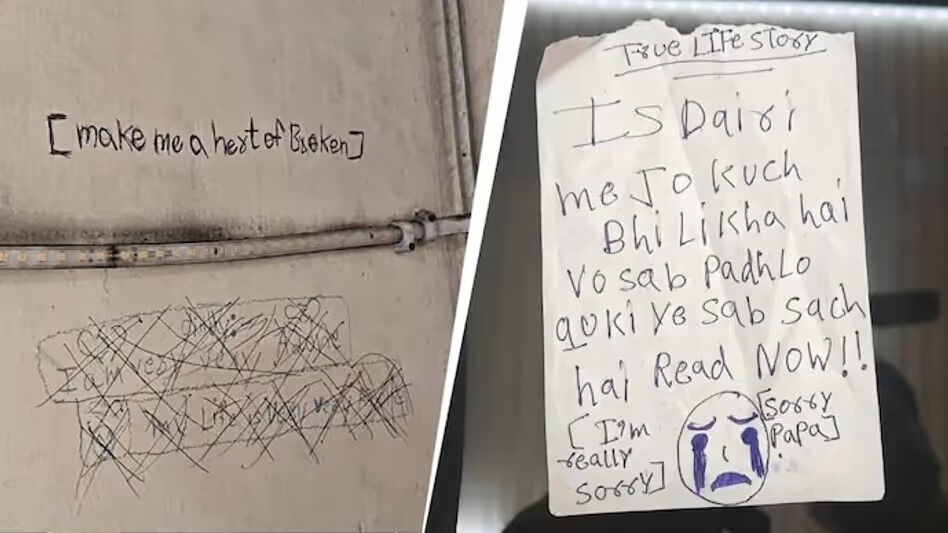 [make me a hert of Broken]
I am very very
my Life is very very
True LIFe story
Is Dairi
me Jo kuch
Bhi Likha hai
vo sab Padh Lo
quki ye sab sach
hai Read NOW!!
[I'm
really
sorry]
[sorry
Papa]